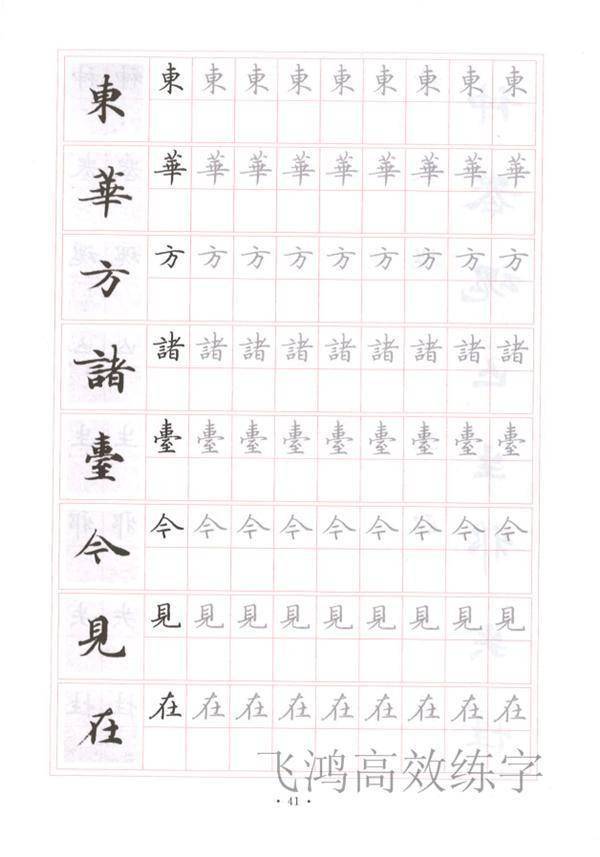 東 東 東 東 東 東 東 東 東 東
華 華 華 華 華 華 華 華 華 華
方 方 方 方 方 方 方 方 方 方
諸 諸 諸 諸 諸 諸 諸 諸 諸 諸
臺 臺 臺 臺 臺 臺 臺 臺 臺 臺
今 今 今 今 今 今 今 今 今 今
見 見 見 見 見 見 見 見 見 見
在 在 在 在 在 在 在 在 在 在
飞鸿高效练字
· 41 ·